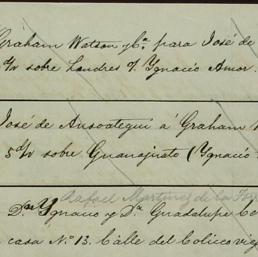 Graham Watson y Cª. para José de
d/v sobre Londres %. Ygnacio Amor
José de Ansoategui á Graham
5 d/v sobre Guanajuato (Ygnacio
Rafael Martinez de la Torre
Dⁿ Ygnacio y Dª Guadalupe Co
casa Nº 13. Calle del Coliseo vie